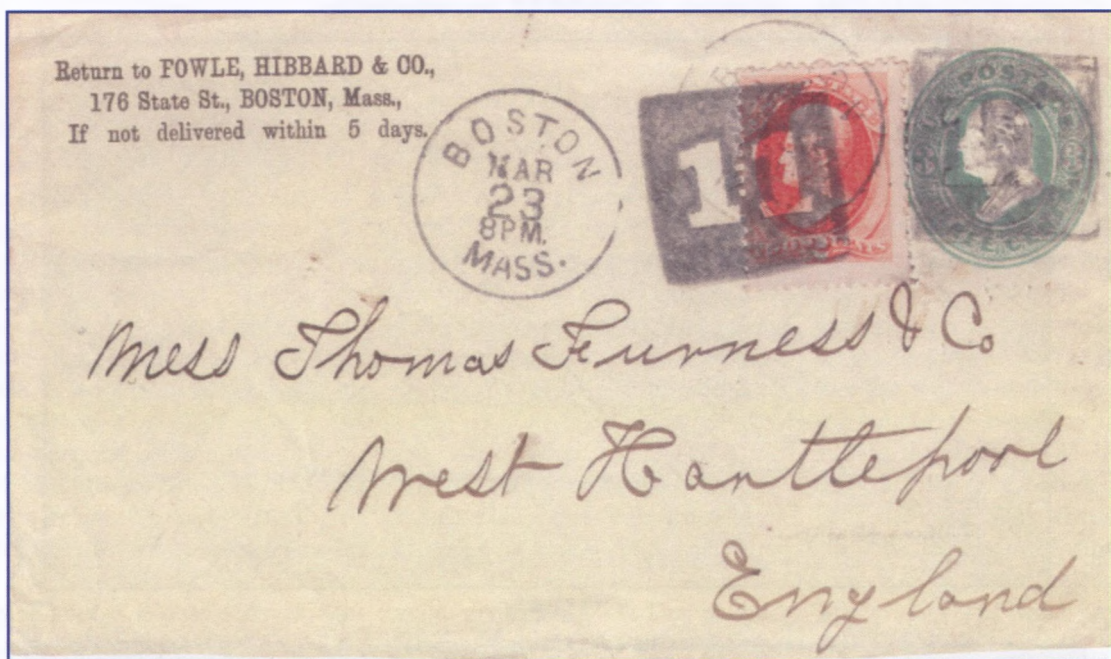 Return to FOWLE, HIBBARD & CO.,
176 State St., BOSTON, Mass.,
If not delivered within 5 days.
BOSTON
MAR
23
8PM.
MASS.
1
Mess Thomas Furness & Co
West Harttepool
England